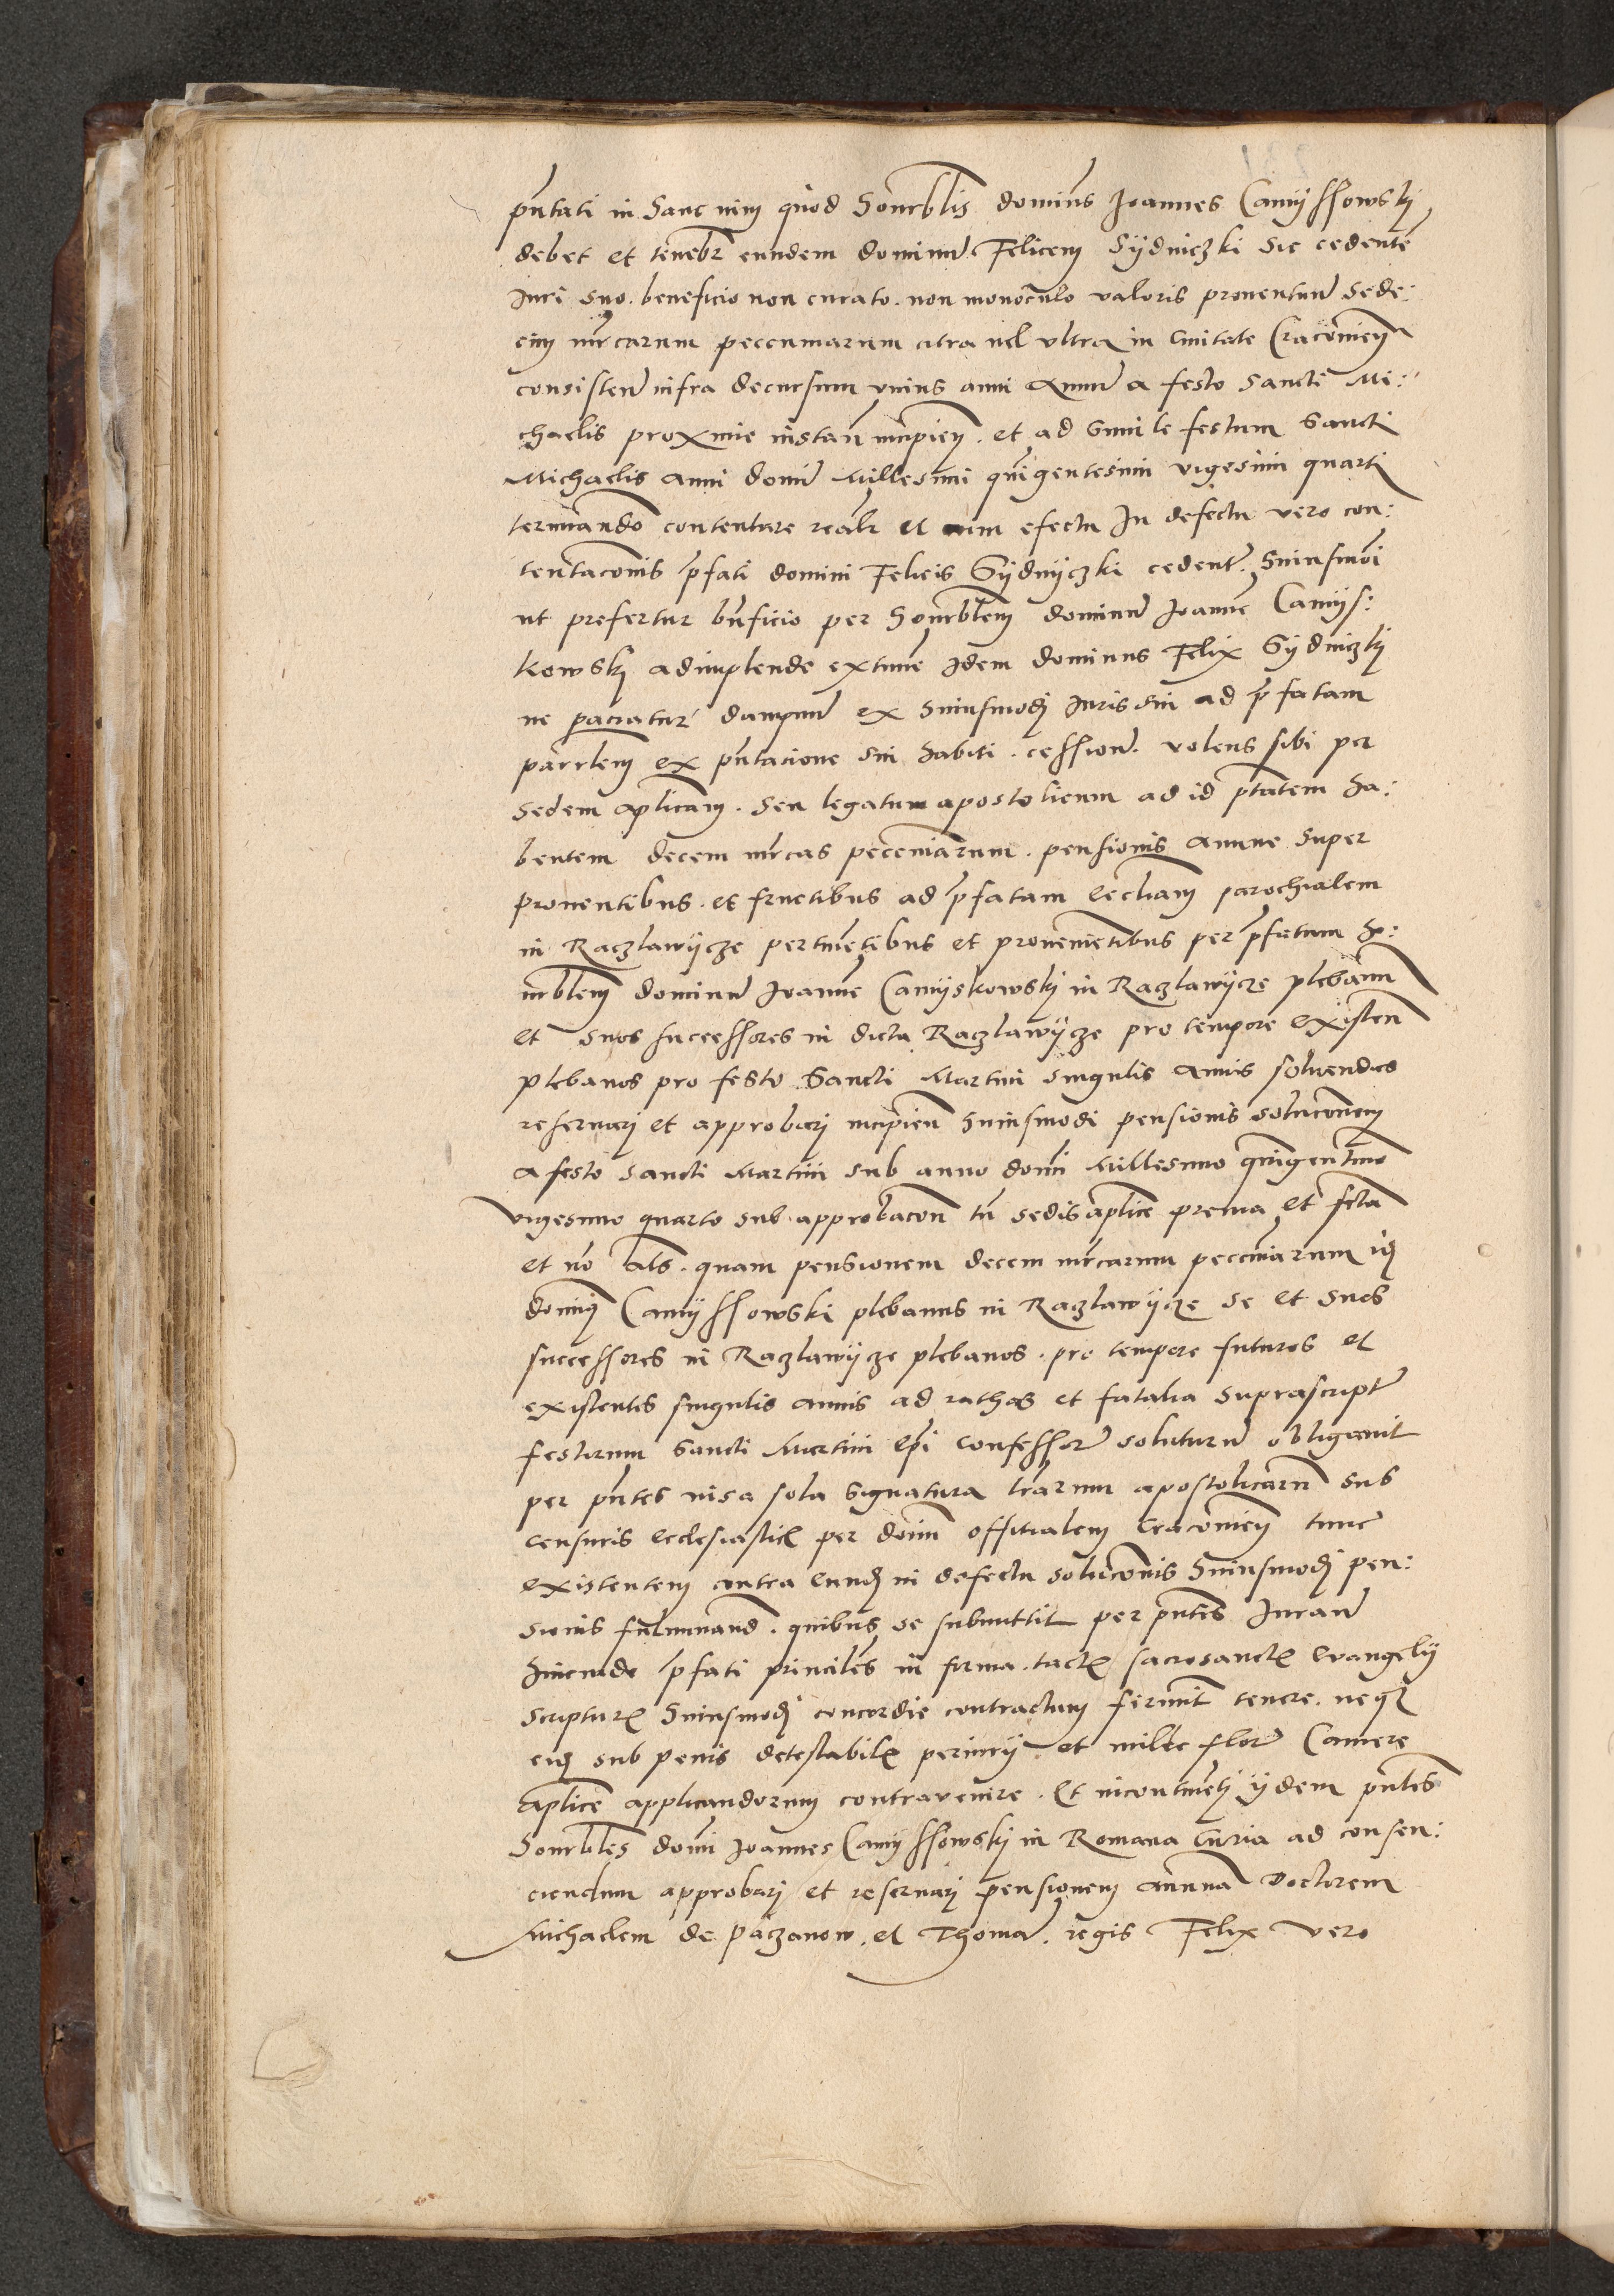 pntati in hanc vim quod honrblis dominus Joannes Camyssowskj
debet et tenebr eundem dominu Felicem Sydniczki sic cedente
Juri suo. beneficio non curato. non monoculo valoris prouentuu sede:
cim mrcarum pecuniarum citra uel vltra in Ciuitate Cracouien
consisten infra decursum vnius anni Annu a festo Sancti Mi:
chaelis proxime instan incipien. et ad simile festum Sancti
Michaelis anni domi Millesimi quigentesimi vigesimi quarti
terminando contentare realr et cum efectu In defectu vero con:
tentaconis pfati domini Felicis Sydnyczki cedent. huiusmoi
ut prefertur bnficio per honrblem dominu Joanne Camys:
kowskj adimplende extunc Idem dominus Felix Sydniczkj
ne paciatur dampnu ex huiusmodj Juris sui ad pfatam
parrlem ex pntacione sui habiti. cessione. volens sibi per
Sedem aplicam. seu legatum apostolicum ad id ptatem ha:
bentem decem mrcas pecuniarum. pensionis annue super
prouentibus. et fructibus ad pfatam Eccliam parochialem
in Raczlawycze pertinetibus et prouenietibus per pfatum ho:
nrblem dominu Joanne Camyskowskj in Raczlawycze plebanu
et suos successores in dicta Raczlawycze pro tempore existen
plebanos pro festo Sancti Martini singulis annis soluendas
reseruarj et approbarj incipien huiusmodi pensionis soluconem
a festo sancti Martini sub anno domi Millesimo quingentimo
vigesimo quarto sub. approbacon tn sedis aplice preuia et fcta
et no als. quam pensionem decem mrcarum pecuniarum idj
domis Camyssowski plebanus in Raczlawycze se et suos
successores in Raczlawycze plebanos. pro tempore futuros et
existentes singulis annis ad rathas et fatalia suprascript
festorum Sancti Martini Epi confessor soluturu obligauit
per pntes visa sola signatura lrarum apostolicaru sub
censuris Ecclesiastic per domi offitialem Cracouien tunc
existentem contra eundj in defectu soluconis huiusmodj pen:
sionis fulminand. quibus se submittit per pntes Juran
hincinde pfati principales in forma. tactis sacrosanctis Euangelij
scripturis huiusmodj concordie contractum firmit tenere. neqz
eidj sub penis detestabilis periurij et mille flor Camere
aplice applicandorum contravenire. Et incontinetj ydem pntes
honrbles domi Joannes Camyssowskj in Romana Curia ad consen:
ciendum approbarj et reseruarj pensionem annua Doctorem
Michaelem de paczanow. et Thoma. regis Felix vero